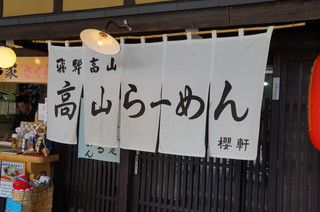 飛騨高山
高山らーめん
櫻軒